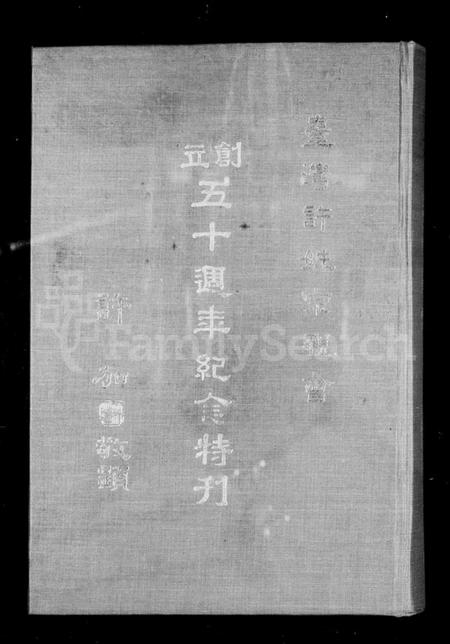 臺灣許姓宗親會
創立
五十週年紀念特刊
許
敬題
FamilySearch